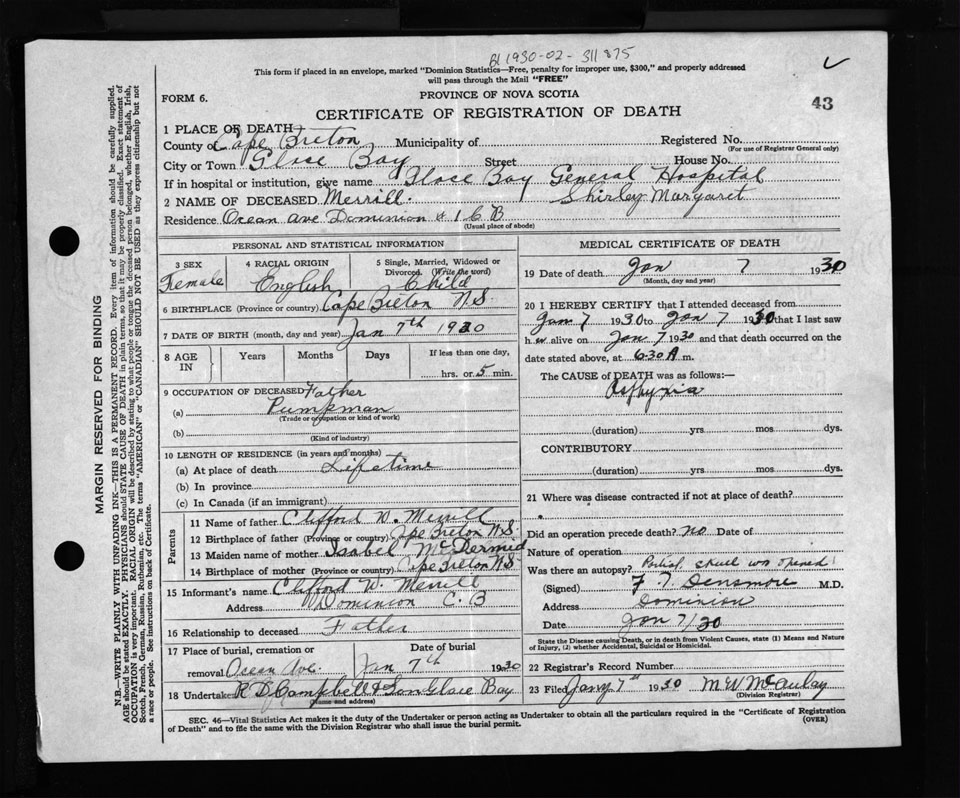 BL 1930-02-311875
This form if placed in an envelope, marked "Dominion Statistics—Free, penalty for improper use, $300," and properly addressed
will pass through the Mail "FREE"
FORM 6.
PROVINCE OF NOVA SCOTIA
43
CERTIFICATE OF REGISTRATION OF DEATH
1 PLACE OF DEATH
County of Cape Breton Municipality of Registered No.
(For use of Registrar General only)
City or Town Glace Bay Street House No.
If in hospital or institution, give name Glace Bay General Hospital
2 NAME OF DECEASED Merrill. Shirley Margaret
Residence Ocean Ave Dominion # 1 C B
(Usual place of abode)
PERSONAL AND STATISTICAL INFORMATION
3 SEX 4 RACIAL ORIGIN 5 Single, Married, Widowed or
Divorced. (Write the word)
Female English Child
6 BIRTHPLACE (Province or country) Cape Breton N.S.
7 DATE OF BIRTH (month, day and year) Jan 7th 1930
8 AGE IN Years Months Days If less than one day,
hrs. or 5 min.
9 OCCUPATION OF DECEASED Father
(a) Pumpman
(Trade or occupation or kind of work)
(b)
(Kind of industry)
10 LENGTH OF RESIDENCE (in years and months)
(a) At place of death Lifetime
(b) In province
(c) In Canada (if an immigrant)
Parents
11 Name of father Clifford W. Merrill
12 Birthplace of father (Province or country) Cape Breton N.S.
13 Maiden name of mother Isabel McDermid
14 Birthplace of mother (Province or country) Cape Breton N.S
15 Informant's name Clifford W. Merrill
Address Dominion C. B
16 Relationship to deceased Father
17 Place of burial, cremation or Date of burial
removal Ocean Ave. Jan 7th 1930
18 Undertaker R D Campbell & Son Glace Bay
(Name and address)
MEDICAL CERTIFICATE OF DEATH
19 Date of death Jan 7 1930
(Month, day and year)
20 I HEREBY CERTIFY that I attended deceased from
Jan 7 1930 to Jan 7 1930 that I last saw
h er alive on Jan 7 1930 and that death occurred on the
date stated above, at 6-30 A m.
The CAUSE of DEATH was as follows:—
Asphyxia
(duration) yrs mos dys.
CONTRIBUTORY
(duration) yrs. mos. dys.
21 Where was disease contracted if not at place of death?
Did an operation precede death? no Date of
Nature of operation
Was there an autopsy? Partial, skull was opened
(Signed) F. T. Densmore M.D.
Address Dominion
Date Jan 7/30
State the Disease causing Death, or in death from Violent Causes, state (1) Means and Nature
of Injury, (2) whether Accidental, Suicidal or Homicidal.
22 Registrar's Record Number
23 Filed Jany 7th 1930 M W McAulay
(Division Registrar)
SEC. 46—Vital Statistics Act makes it the duty of the Undertaker or person acting as Undertaker to obtain all the particulars required in the "Certificate of Registration
of Death" and to file the same with the Division Registrar who shall issue the burial permit. (OVER)
MARGIN RESERVED FOR BINDING
N.B.—WRITE PLAINLY WITH UNFADING INK—THIS IS A PERMANENT RECORD. Every item of information should be carefully supplied.
AGE should be stated EXACTLY. PHYSICIANS should STATE CAUSE OF DEATH in plain terms, so that it may be properly classified. Exact statement of
OCCUPATION is very important. RACIAL ORIGIN will be described by stating to what people or tongue the deceased person belonged, whether English, Irish,
Scotch, French, German, Russian, Ruthenian, etc. The terms "AMERICAN" or "CANADIAN" SHOULD NOT BE USED as they express citizenship but not
a race or people. See instructions on back of Certificate.